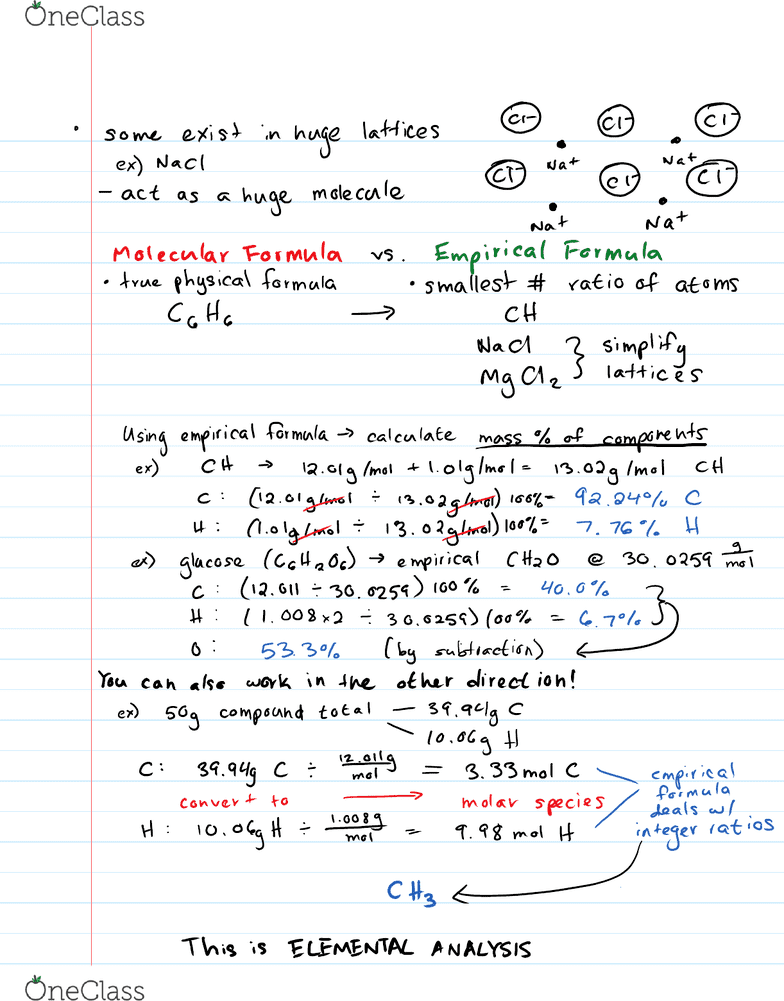 OneClass
• some exist in huge lattices
ex) NaCl
- act as a huge molecule
Cl- Cl- Cl-
Na+ Na+
Cl- Cl- Cl-
Na+ Na+
Molecular Formula vs. Empirical Formula
• true physical formula • smallest # ratio of atoms
C6H6 → CH
NaCl } simplify
MgCl2 lattices
Using empirical formula → calculate mass % of components
ex) CH → 12.01g/mol + 1.01g/mol = 13.02g/mol CH
C: (12.01g/mol ÷ 13.02g/mol) 100%= 92.24% C
H: (1.01g/mol ÷ 13.02g/mol) 100%= 7.76% H
ex) glucose (C6H2O6) → empirical CH2O @ 30.0259 g/mol
C: (12.011 ÷ 30.0259) 100% = 40.0%
H: (1.008×2 ÷ 30.0259) 100% = 6.7%
O: 53.3% (by subtraction)
You can also work in the other direction!
ex) 50g compound total — 39.94g C
10.06g H
C: 39.94g C ÷ 12.011g/mol = 3.33 mol C
convert to → molar species
H: 10.06g H ÷ 1.008g/mol = 9.98 mol H
empirical
formula
deals w/
integer ratios
CH3
This is ELEMENTAL ANALYSIS
OneClass